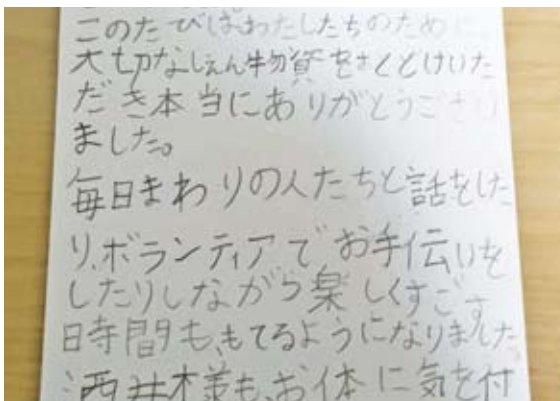 このたびはわたしたちのために、
大切なしえん物資をおとどけいた
だき本当にありがとうござい
ました。
毎日まわりの人たちと話をした
り、ボランティアでお手伝いを
したりしながら楽しくすごす
時間も、もてるようになりました。
酒井様も、お体に気を付